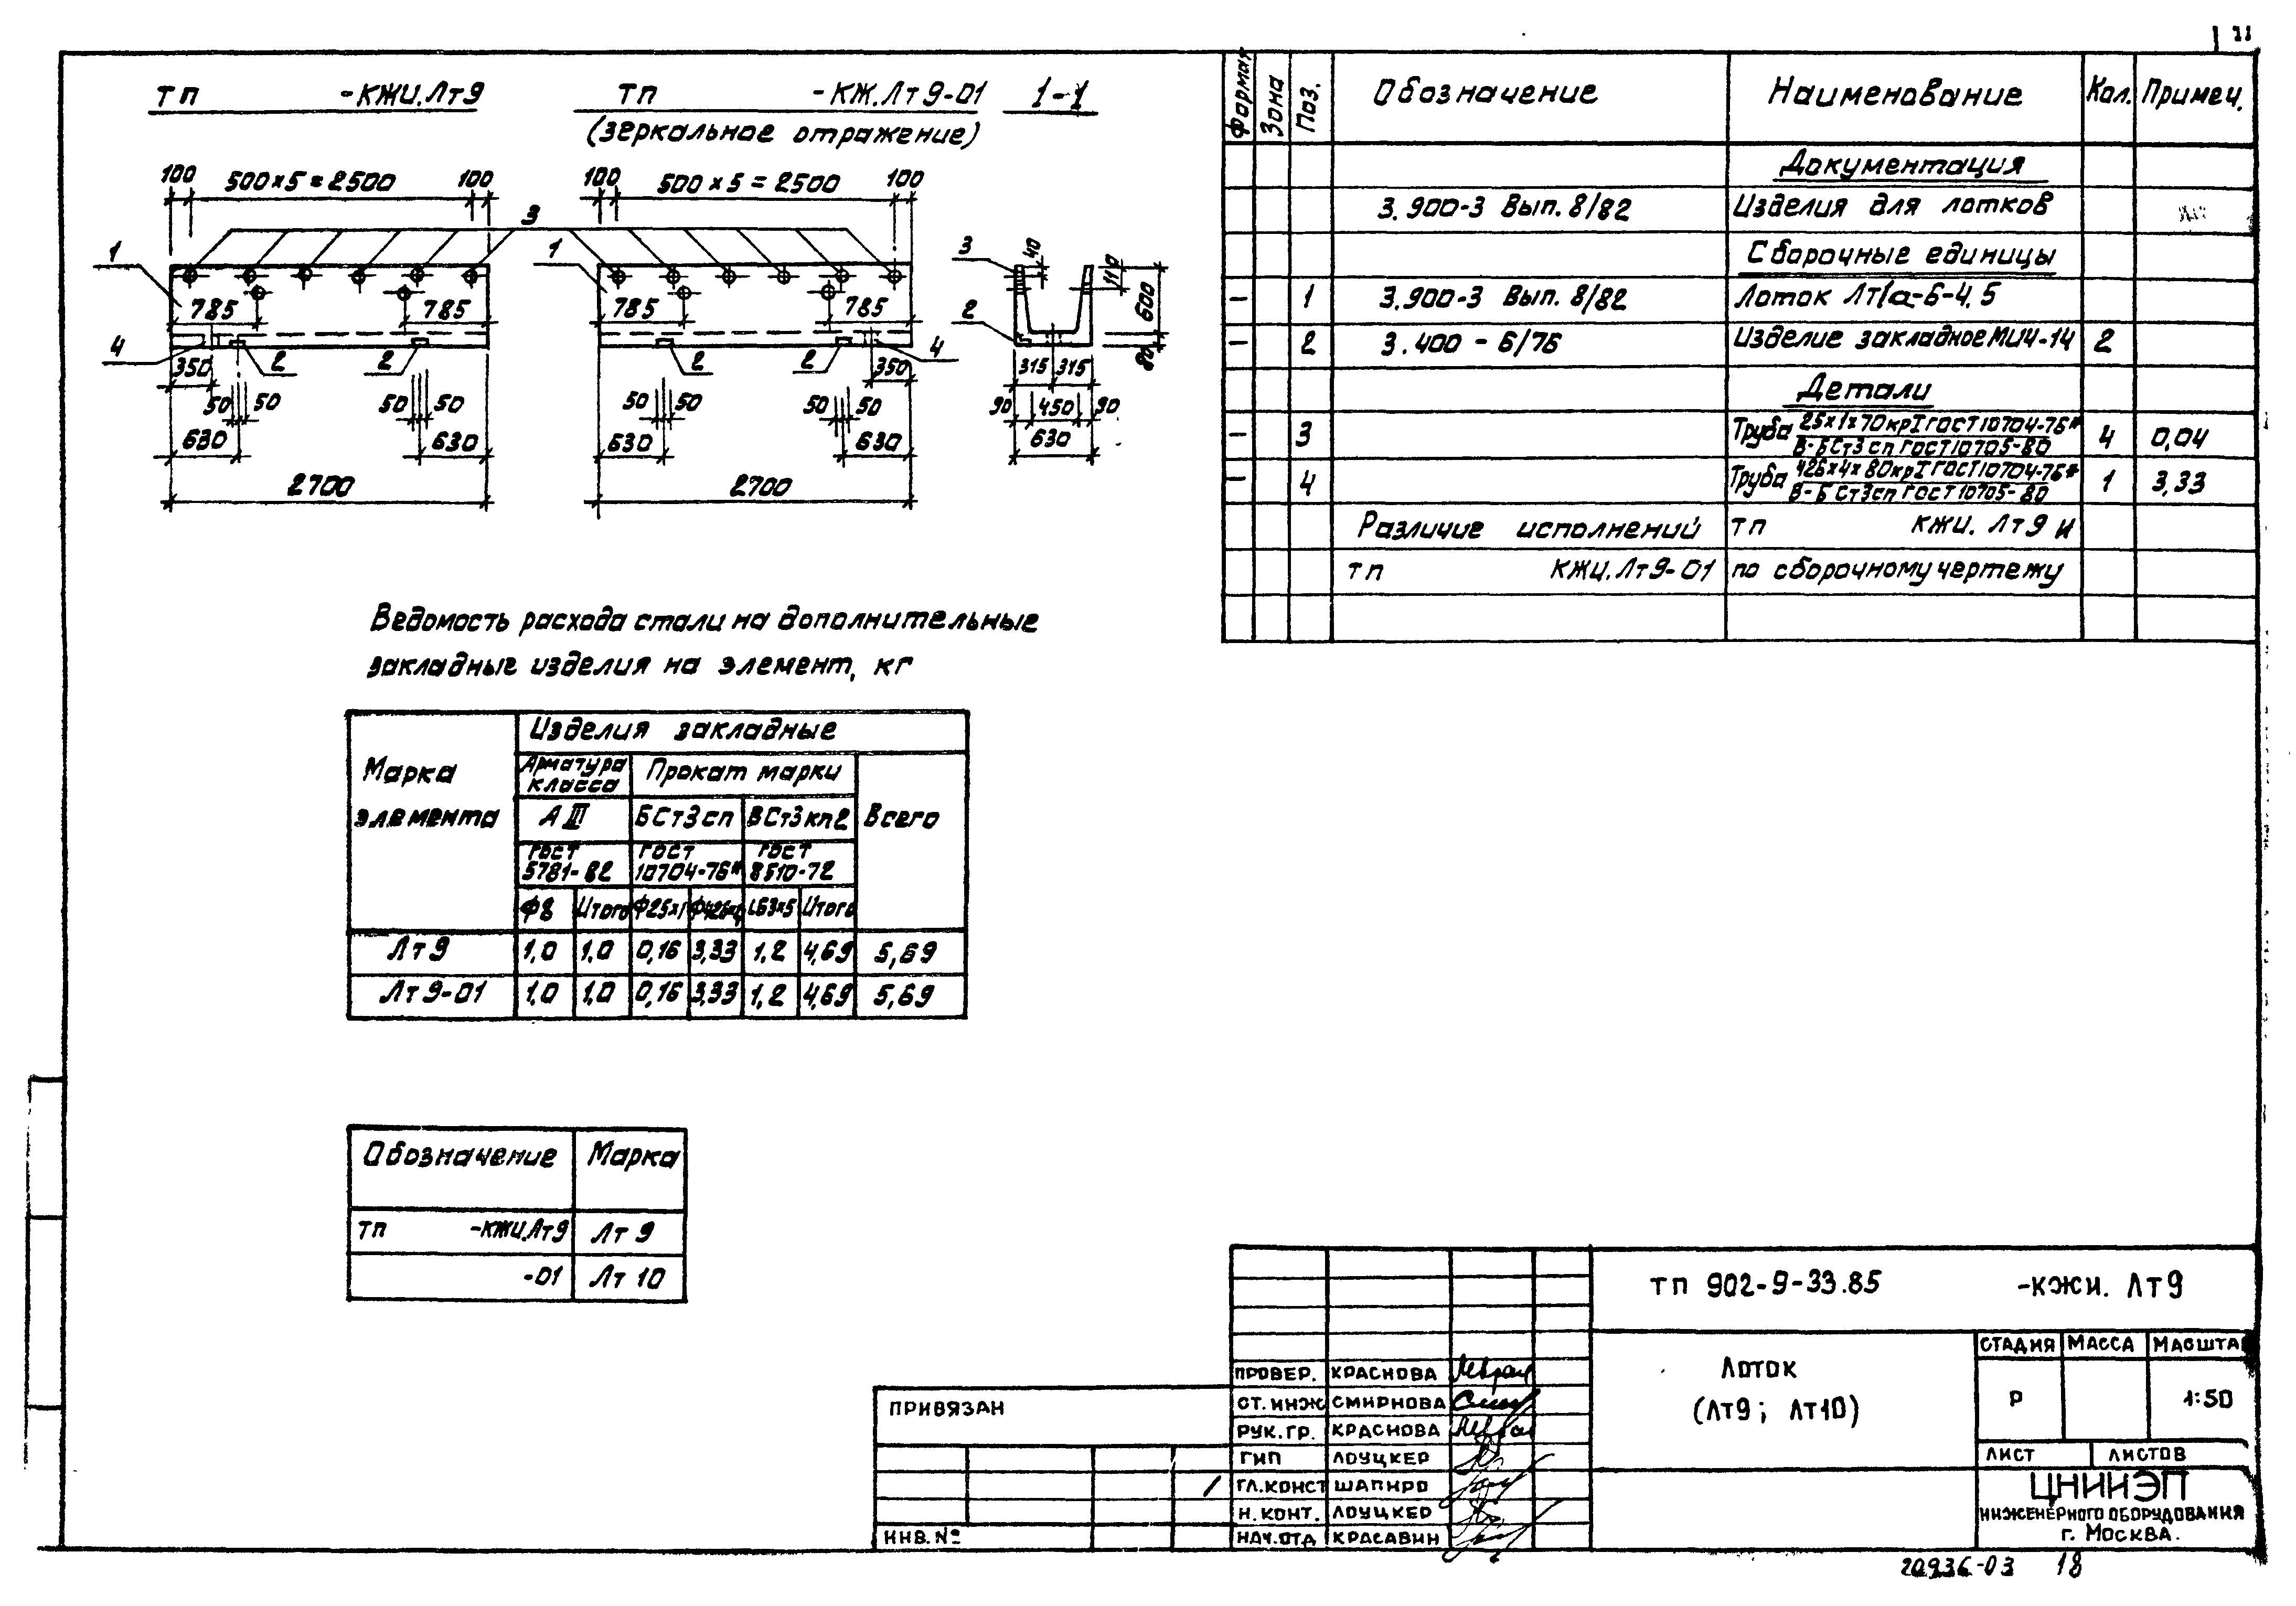 11
ТП -КЖИ.Лт9
ТП -КЖ.Лт9-01
1-1
(зеркальное отражение)
100 500×5=2500 100
100 500×5=2500 100
3
1
1
785 785
785 785
4 2 2
2 2 4
350
350
50 50 50 50
50 50 50 50
630 630
630 630
2700
2700
3 40 110
600
2
80
315 315
90 450 90
630
Формат Зона Поз. Обозначение Наименование Кол. Примеч.
Документация
3.900-3 Вып. 8/82 Изделия для лотков
Сборочные единицы
– 1 3.900-3 Вып. 8/82 Лоток ЛТ1а-6-4,5
– 2 3.400-6/76 Изделие закладное МИ4-14 2
Детали
– 3 Труба 25×1×70крI ГОСТ10704-76* 4 0,04
В-БСт3сп ГОСТ10705-80
– 4 Труба 426×4×80крI ГОСТ10704-76* 1 3,33
В-БСт3сп ГОСТ10705-80
Различие исполнений ТП КЖИ. Лт9 и
ТП КЖИ.Лт9-01 по сборочному чертежу
Ведомость расхода стали на дополнительные
закладные изделия на элемент, кг
Марка элемента
Изделия закладные
Арматура класса Прокат марки Всего
АIII БСт3сп ВСт3кп2
ГОСТ 5781-82 ГОСТ 10704-76* ГОСТ 8510-72
Ф8 Итого Ф25×1 Ф426×4 L63×5 Итого
Лт9 1,0 1,0 0,16 3,33 1,2 4,69 5,69
Лт9-01 1,0 1,0 0,16 3,33 1,2 4,69 5,69
Обозначение Марка
ТП -КЖИ.Лт9 Лт 9
-01 Лт 10
ТП 902-9-33.85 -КЖИ. ЛТ9
Лоток
(ЛТ9; ЛТ10)
СТАДИЯ МАССА МАСШТА
Р 1:50
ЛИСТ ЛИСТОВ
ЦНИИЭП
ИНЖЕНЕРНОГО ОБОРУДОВАНИЯ
г. МОСКВА.
ПРОВЕР. КРАСНОВА
СТ. ИНЖ СМИРНОВА
РУК.ГР. КРАСНОВА
ГИП ЛОУЦКЕР
ГЛ.КОНСТ ШАПИРО
Н. КОНТ. ЛОУЦКЕР
НАЧ.ОТД КРАСАВИН
ПРИВЯЗАН
ИНВ. №
20936-03 18